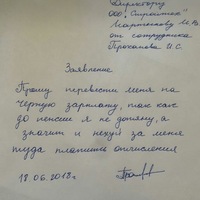 Директору
ООО "Стройтек"
Мартынкову М.В.
от сотрудника
Проханова И.С.
Заявление
Прошу перевести меня на
черную зарплату, так как
до пенсии я не дотяну, а
значит и нехуй за меня
туда платить отчисления
18.06.2018г.